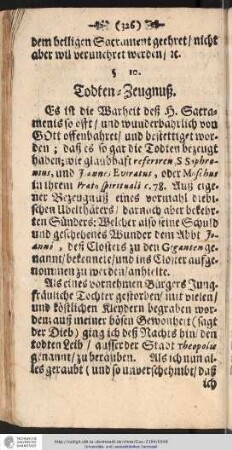 (326)
dem heiligen Sacrament geehret / nicht
aber wil verunehret werden / ꝛc.
§ 10.
Todten-Zeugnuß.
Es ist die Warheit deß H. Sacra-
menis so offt / und wunderbahrlich von
GOtt offenbahret / und bestettiget wor-
den ; daß es so gar die Todten bezeugt
haben; wie glaubhaft referiren, S Sophro-
nius, und Joannes Eviratus, oder Moschus
in ihrem Prato spirituali c. 78. Auß eigner
Bezeugnuß eines vormahl diebi-
schen Ubelthäters / darnach aber bekehr-
ten Sünders: Welcher also seine Schuld
und geschehenes Wunder dem Abbt Jo-
anni, deß Closters zu den Giganten ge-
nannt / bekennete / und ins Closter aufge-
nommen zu werden / anhielte.
Als eines vornehmen Bürgers Jung-
fräuliche Tochter gestorben / mit vielen /
und köstlichen Kleydern begraben wor-
den; auß meiner bösen Gewonheit (sagt
der Dieb) ging ich deß Nachts hin / den
todten Leib / ausserder Stadt Theopolis
genannt / zu berauben. Als ich nun al-
les geraubt ( und so unverschehmbt / daß
ich